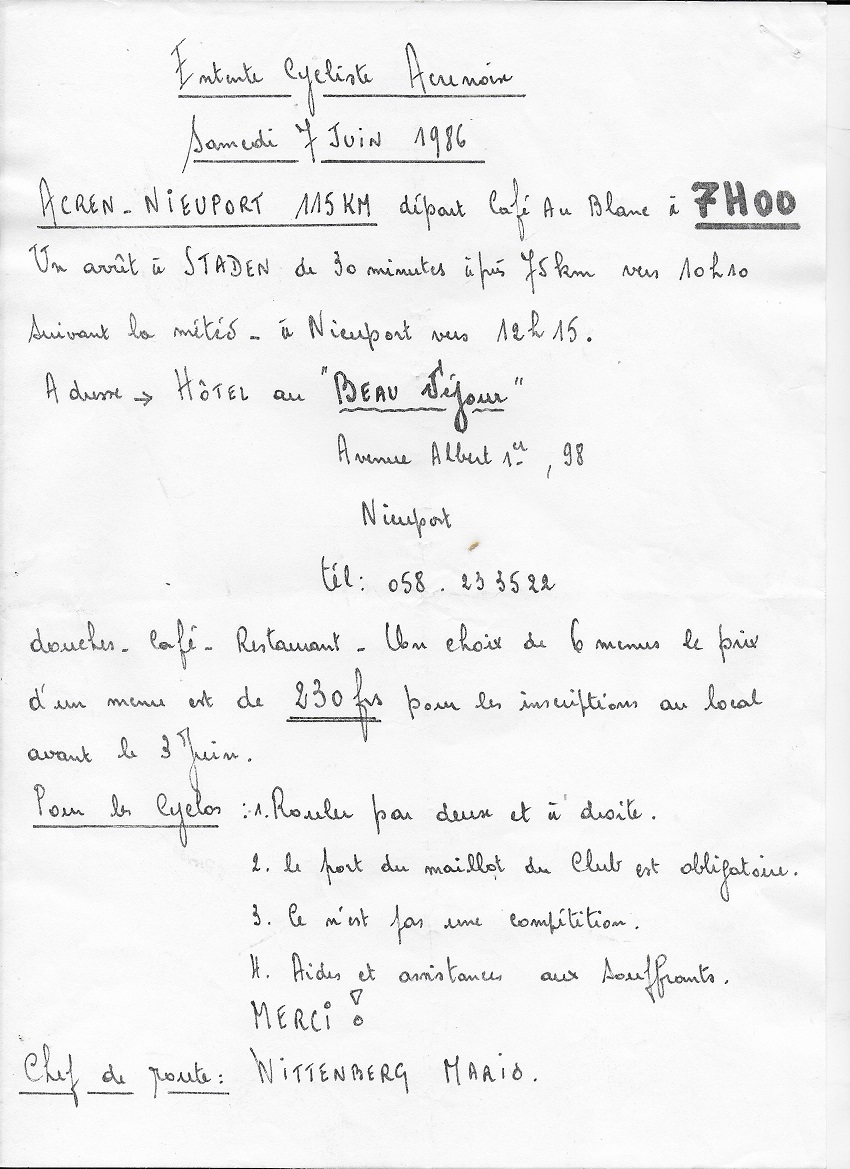 Entente Cycliste Acrenoise
Samedi 7 Juin 1986
ACREN - NIEUPORT 115KM départ Café Au Blanc à 7H00
Un arrêt à STADEN de 30 minutes àprés 75km vers 10h10
suivant la météo - à Nieuport vers 12h15.
Adresse → HÔTEL au "BEAU Séjour"
Avenue Albert 1er, 98
Nieuport
tél: 058. 233522
douches - Café - Restaurant - Un choix de 6 menus le prix
d'un menu est de 230 frs pour les inscriptions au local
avant le 3 Juin.
Pour les Cyclos : 1. Rouler par deux et à droite.
2. le port du maillot du Club est obligatoire.
3. Ce n'est pas une compétition.
4. Aides et assistances aux souffrants.
MERCI !
Chef de route: WITTENBERG MARIO.